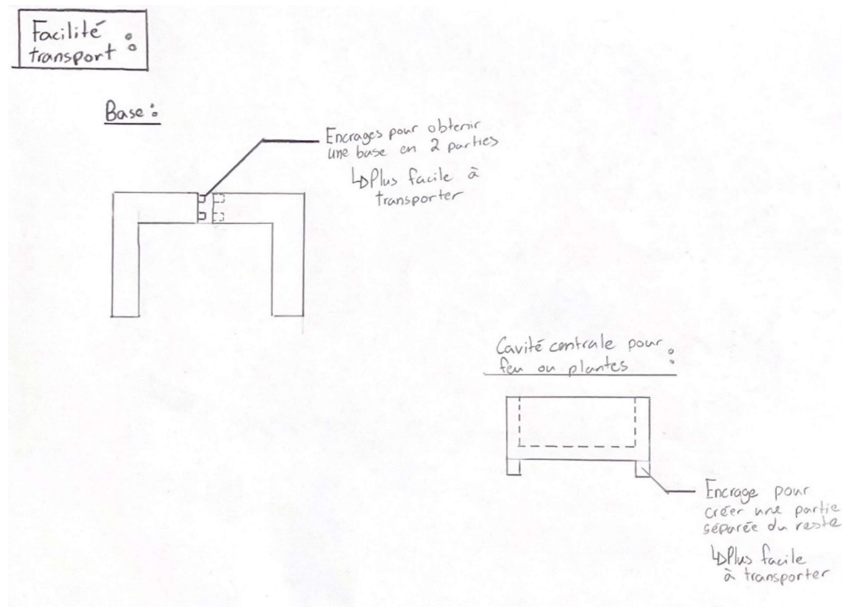 Facilité
transport :
Base :
Encrages pour obtenir
une base en 2 parties
↳Plus facile à
transporter
Cavité centrale pour
feu ou plantes :
Encrage pour
créer une partie
séparée du reste
↳Plus facile
à transporter